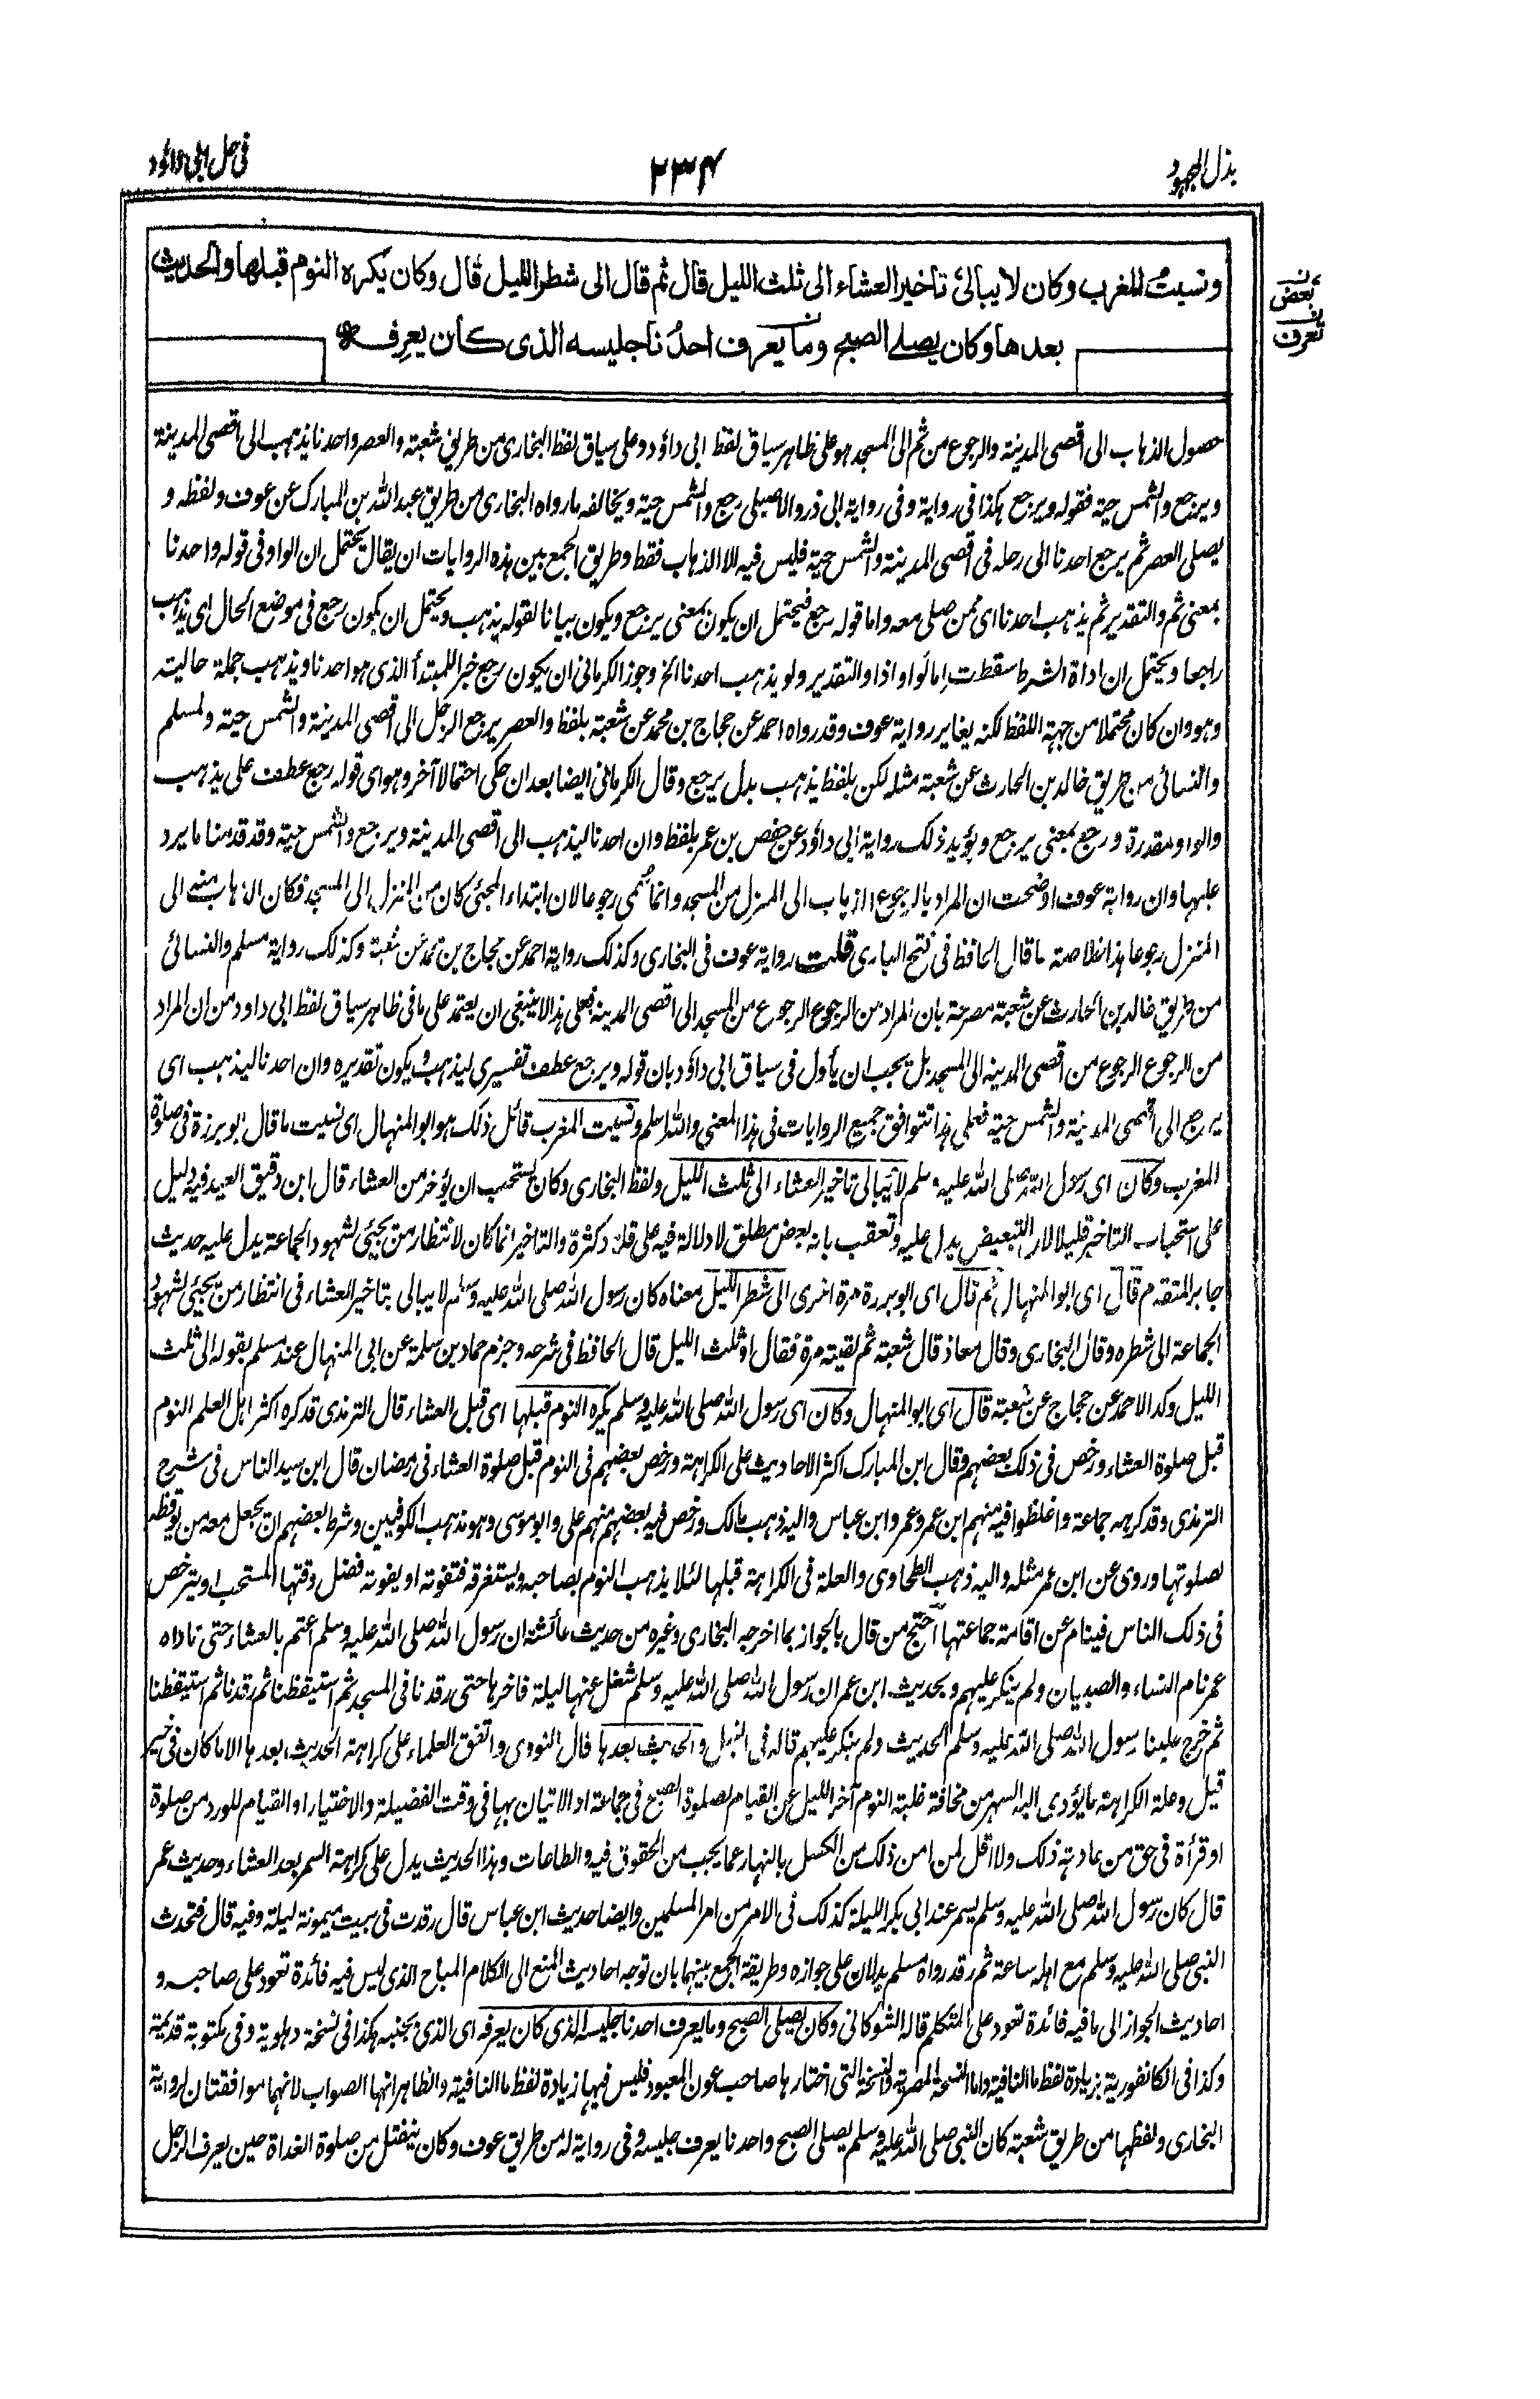 بذل المجهود
٢٣٤
فی حل ابی داؤد
ونسیت المغرب وکان لا یبالی تاخیر العشاء الی ثلث اللیل قال ثم قال الی شطر اللیل قال وکان یکره النوم قبلها والحدیث
بعدها وکان یصلی الصبح وما یعرف احدنا جلیسه الذی کان یعرفه
بعض
تعرف
حصول الذهاب الی اقصی المدینة والرجوع من ثم الی المسجد هو علی ظاهر سیاق لفظ ابی داؤد وعلی سیاق لفظ البخاری من طریق شعبة والعصر واحدنا یذهب الی اقصی المدینة
ویرجع والشمس حیة فقوله ویرجع هکذا فی روایة وفی روایة ابی ذر والاصیلی رجع والشمس حیة ویخالفه ما رواه البخاری من طریق عبد الله بن المبارک عن عوف ولفظه و
یصلی العصر ثم یرجع احدنا الی رحله فی اقصی المدینة والشمس حیة فلیس فیه الا الذهاب فقط وطریق الجمع بین هذه الروایات ان یقال یحتمل ان الواو فی قوله واحدنا
بمعنی ثم والتقدیر ثم یذهب احدنا ای ممن صلی معه واما قوله رجع فیحتمل ان یکون بمعنی یرجع ویکون بیانا لقوله یذهب ویحتمل ان یکون رجع فی موضع الحال ای یذهب
راجعا ویحتمل ان اداة الشرط سقطت اما لو او اذا والتقدیر ولو یذهب احدنا الخ وجوز الکرمانی ان یکون رجع خبرا للمبتدأ الذی هو احدنا ویذهب جملة حالیة
وهو وان کان محتملا من جهة اللفظ لکنه یغایر روایة عوف وقد رواه احمد عن حجاج بن محمد عن شعبة بلفظ والعصر یرجع الرجل الی اقصی المدینة والشمس حیة ولمسلم
والنسائی من طریق خالد بن الحارث عن شعبة مثله لکن بلفظ یذهب بدل یرجع وقال الکرمانی ایضا بعد ان حکی احتمالا آخر وهو ای قوله رجع عطف علی یذهب
والواو مقدرة ورجع بمعنی یرجع ویؤید ذلک روایة ابی داؤد عن حفص بن عمر بلفظ وان احدنا لیذهب الی اقصی المدینة ویرجع والشمس حیة وقد قدمنا ما یرد
علیها وان روایة عوف اوضحت ان المراد بالرجوع الذهاب الی المنزل من المسجد وانما سمی رجوعا لان ابتداء المجئ کان من المنزل الی المسجد فکان الذهاب منه الی
المنزل رجوعا هذا خلاصة ما قال الحافظ فی فتح الباری قلت روایة عوف فی البخاری وکذلک روایة احمد عن حجاج بن محمد عن شعبة وکذلک روایة مسلم والنسائی
من طریق خالد بن الحارث عن شعبة مصرحة بان المراد من الرجوع الرجوع من المسجد الی اقصی المدینة فعلی هذا لا ینبغی ان یعتمد علی ما فی ظاهر سیاق لفظ ابی داود من ان المراد
من الرجوع الرجوع من اقصی المدینة الی المسجد بل یجب ان یأول فی سیاق ابی داؤد بان قوله ویرجع عطف تفسیری لیذهب ویکون تقدیره وان احدنا لیذهب ای
یرجع الی اقصی المدینة والشمس حیة فعلی هذا تتوافق جمیع الروایات فی هذا المعنی والله اعلم ونسیت المغرب قائل ذلک هو ابو المنهال ای نسیت ما قال ابو برزة فی صلوة
المغرب وکان ای رسول الله صلی الله علیه وسلم لا یبالی تاخیر العشاء الی ثلث اللیل ولفظ البخاری وکان یستحب ان یؤخر من العشاء قال ابن دقیق العید فیه دلیل
علی استحباب التاخیر قلیلا لان التبعیض یدل علیه وتعقب بانه بعض مطلق لا دلالة فیه علی قلة وکثرة والتاخیر انما کان لانتظار من یجیئ لشهود الجماعة یدل علیه حدیث
جابر المتقدم قال ای ابو المنهال ثم قال ای ابو برزة مرة اخری الی شطر اللیل معناه کان رسول الله صلی الله علیه وسلم لا یبالی بتاخیر العشاء فی انتظار من یجیئ لشهود
الجماعة الی شطره وقال البخاری وقال معاذ قال شعبة ثم لقیته مرة فقال او ثلث اللیل قال الحافظ فی شرحه وجزم حماد بن سلمة عن ابی المنهال عند مسلم بقوله الی ثلث
اللیل وکذا لاحمد عن حجاج عن شعبة قال ای ابو المنهال وکان ای رسول الله صلی الله علیه وسلم یکره النوم قبلها ای قبل العشاء قال الترمذی قد کره اکثر اهل العلم النوم
قبل صلوة العشاء ورخص فی ذلک بعضهم وقال ابن المبارک اکثر الاحادیث علی الکراهة ورخص بعضهم فی النوم قبل صلوة العشاء فی رمضان قال ابن سید الناس فی شرح
الترمذی وقد کرهه جماعة واغلظوا فیه منهم ابن عمر وعمر وابن عباس والیه ذهب مالک ورخص فیه بعضهم منهم علی وابو موسی وهو مذهب الکوفیین وشرط بعضهم ان یجعل معه من یوقظه
لصلوتها وروی عن ابن عمر مثله والیه ذهب الطحاوی والعلة فی الکراهة قبلها لئلا یذهب النوم بصاحبه ویستغرقه فتفوته او یفوته فضل وقتها المستحب او یترخص
فی ذلک الناس فینام عن اقامة جماعتها احتج من قال بالجواز بما اخرجه البخاری وغیره من حدیث عائشة ان رسول الله صلی الله علیه وسلم اعتم بالعشاء حتی ناداه
عمر نام النساء والصبیان ولم ینکر علیهم وبحدیث ابن عمر ان رسول الله صلی الله علیه وسلم شغل عنها لیلة فاخرها حتی رقدنا فی المسجد ثم استیقظنا ثم رقدنا ثم استیقظنا
ثم خرج علینا رسول الله صلی الله علیه وسلم الحدیث ولم ینکر علیهم قاله فی النیل والحدیث بعدها قال النووی واتفق العلماء علی کراهة الحدیث بعدها الا ما کان فی خیر
قیل وعلة الکراهة ما یؤدی الیه السهر من مخافة غلبة النوم آخر اللیل عن القیام لصلوة الصبح فی جماعة او الاتیان بها فی وقت الفضیلة والاختیار او القیام للورد من صلوة
او قرأة فی حق من عادته ذلک ولا اقل لمن امن ذلک من الکسل بالنهار عما یجب من الحقوق فیه والطاعات وهذا الحدیث یدل علی کراهة السمر بعد العشاء وحدیث عمر
قال کان رسول الله صلی الله علیه وسلم یسمر عند ابی بکر اللیلة کذلک فی الامر من امر المسلمین وایضا حدیث ابن عباس قال رقدت فی بیت میمونة لیلة وفیه قال فتحدث
النبی صلی الله علیه وسلم مع اهله ساعة ثم رقد رواه مسلم یدلان علی جوازه وطریقة الجمع بینهما بان توجه احادیث المنع الی الکلام المباح الذی لیس فیه فائدة تعود علی صاحبه و
احادیث الجواز الی ما فیه فائدة تعود علی المتکلم قاله الشوکانی وکان یصلی الصبح وما یعرف احدنا جلیسه الذی کان یعرفه ای الذی بجنبه هکذا فی نسخة دهلویة وفی مکتوبة قدیمة
وکذا فی الکانفوریة بزیادة لفظ ما النافیة واما النسخة المصریة والنسخة التی اختارها صاحب عون المعبود فلیس فیها زیادة لفظ ما النافیة والظاهر انها الصواب لانهما موافقتان لروایة
البخاری ولفظها من طریق شعبة کان النبی صلی الله علیه وسلم یصلی الصبح واحدنا یعرف جلیسه وفی روایة له من طریق عوف وکان ینفتل من صلوة الغداة حین یعرف الرجل